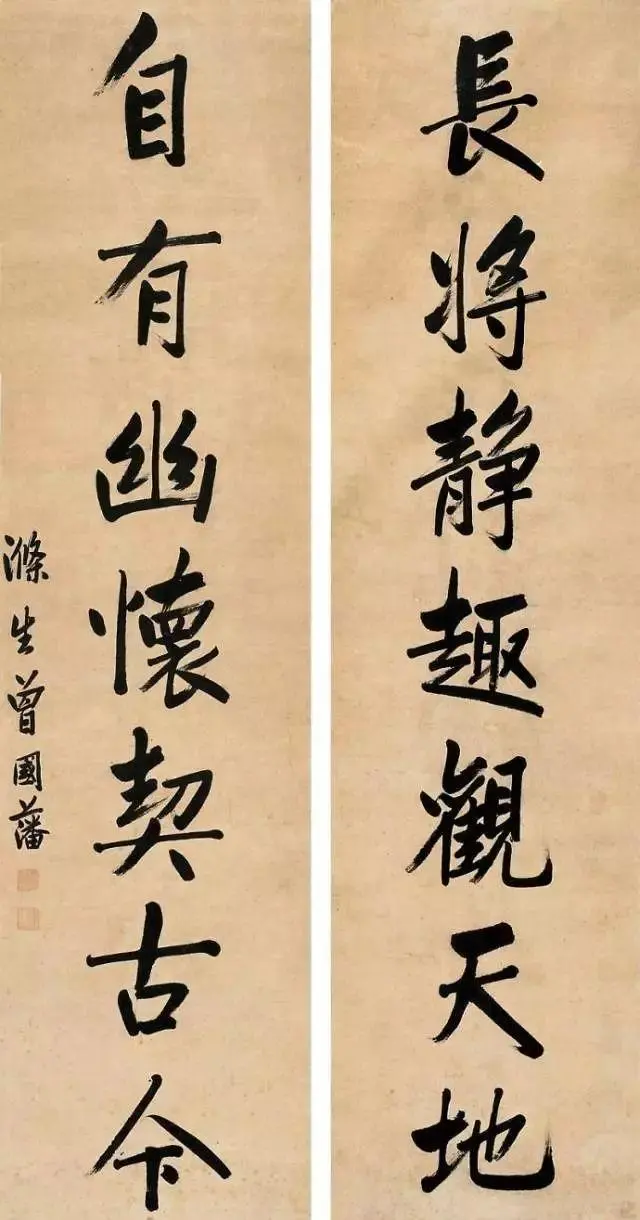 長將靜趣觀天地
自有幽懷契古今
滌生曾國藩